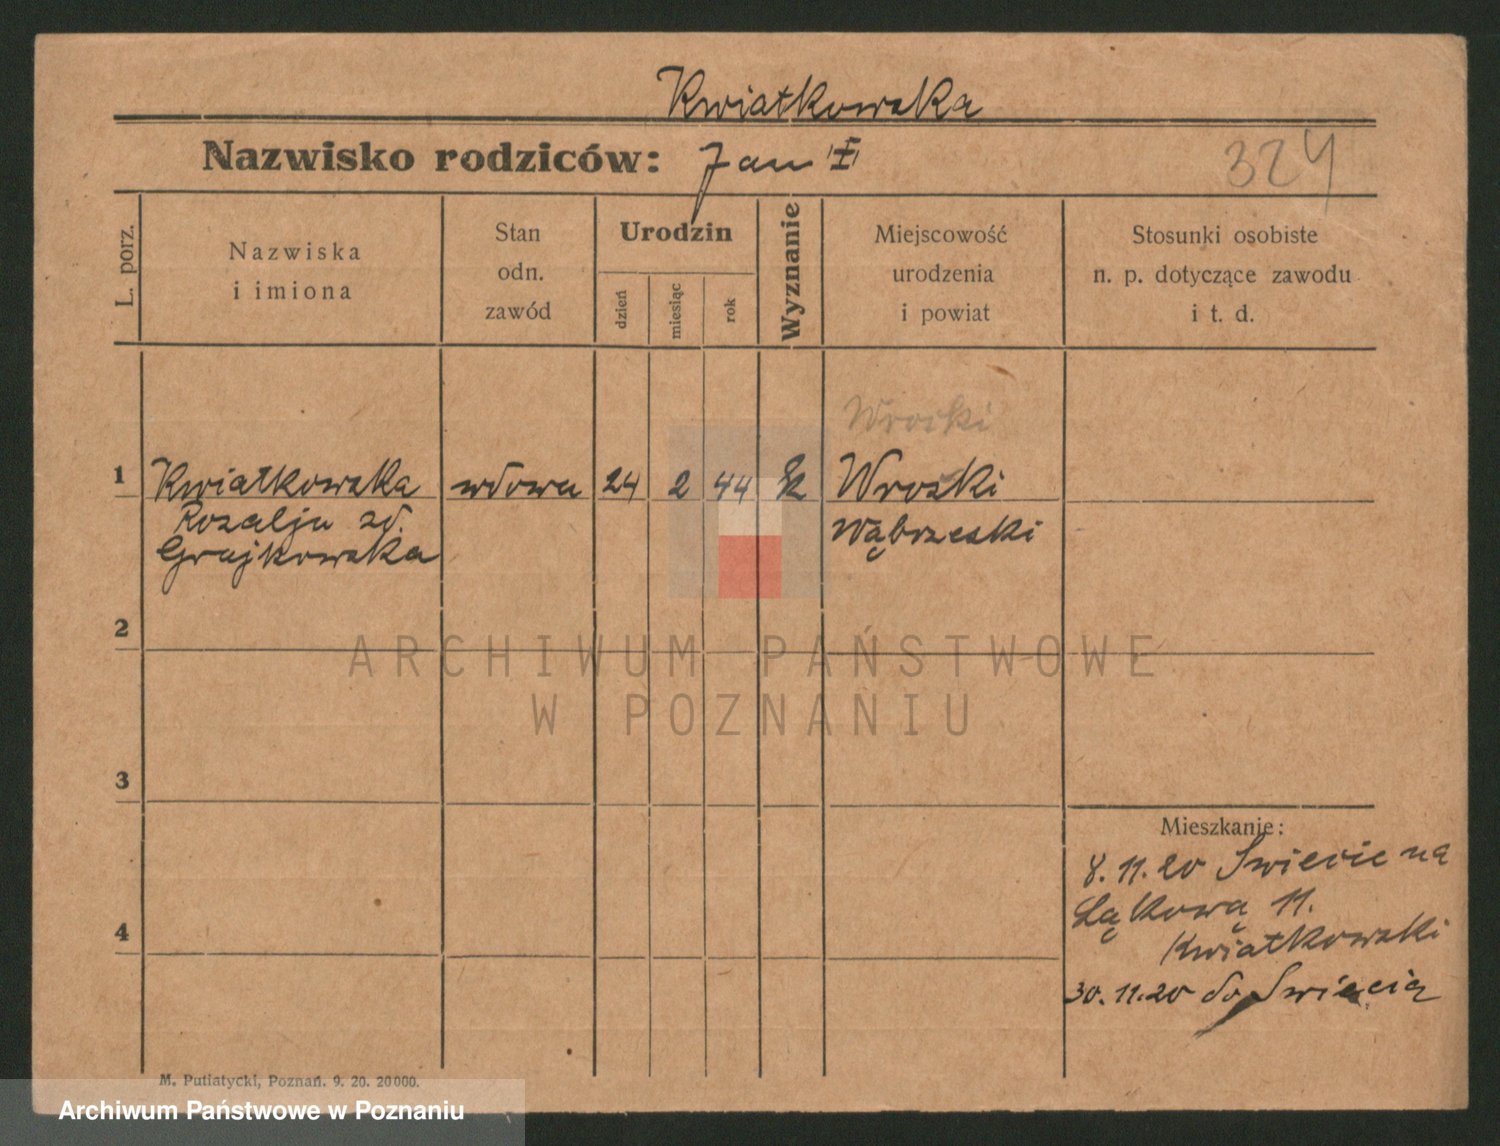 Kwiatkowska
Nazwisko rodziców: Jan
324
L. porz.
Nazwiska
i imiona
Stan
odn.
zawód
Urodzin
dzień
miesiąc
rok
Wyznanie
Miejscowość
urodzenia
i powiat
Stosunki osobiste
n. p. dotyczące zawodu
i t. d.
Wroski
1 Kwiatkowska wdowa 24 2 44 Wroski
Rozalja zd. Wąbrzeski
Grajkowska
2
ARCHIWUM PAŃSTWOWE
W POZNANIU
3
Mieszkanie:
8.11.20 Swiecie na
Łąkową 11.
4
Kwiatkowski
30.11.20 do Swiecia
M. Putiatycki, Poznań. 9. 20. 20000.
Archiwum Państwowe w Poznaniu